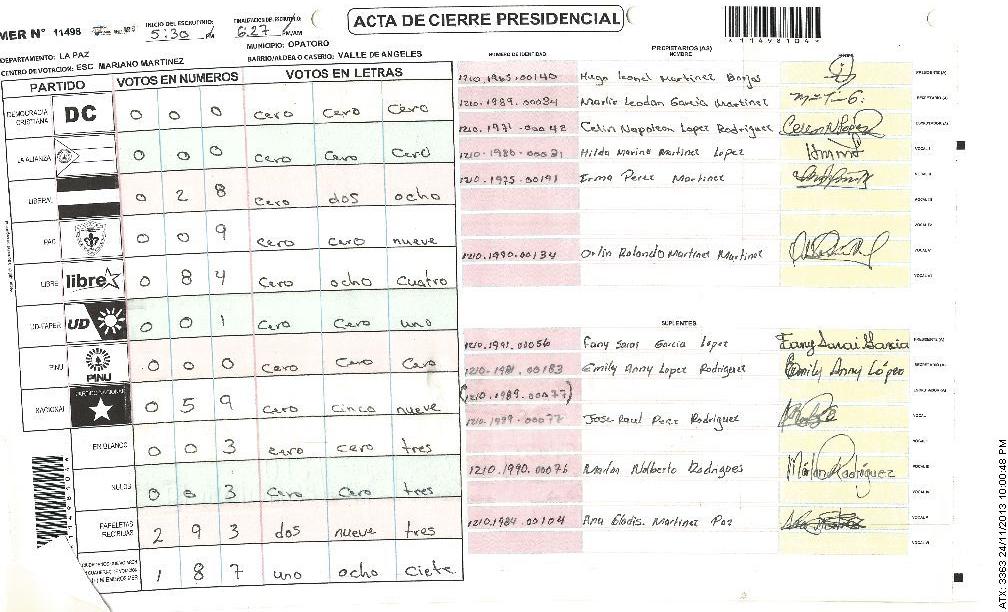 ACTA DE CIERRE PRESIDENCIAL
MER N° 11498
INICIO DEL ESCRUTINIO: 5:30 PM
FINALIZACION DEL ESCRUTINIO: 6:27 PM/AM
*11498104*
DEPARTAMENTO: LA PAZ
MUNICIPIO: OPATORO
CENTRO DE VOTACION: ESC MARIANO MARTINEZ
BARRIO/ALDEA O CASERIO: VALLE DE ANGELES
PARTIDO VOTOS EN NUMEROS VOTOS EN LETRAS
DEMOCRACIA CRISTIANA DC 0 0 0 cero cero cero
LA ALIANZA 0 0 0 cero cero cero
LIBERAL 0 2 8 cero dos ocho
PAC 0 0 9 cero cero nueve
LIBRE libre 0 8 4 cero ocho cuatro
UD-FAPER UD 0 0 1 cero cero uno
PINU PINU 0 0 0 cero cero cero
NACIONAL PARTIDO NACIONAL 0 5 9 cero cinco nueve
EN BLANCO 0 0 3 cero cero tres
NULOS 0 0 3 cero cero tres
PAPELETAS RECIBIDAS 2 9 3 dos nueve tres
1 8 7 uno ocho ciete
*11498104*
PROPIETARIOS (AS)
NUMERO DE IDENTIDAD NOMBRE FIRMA
1210.1965.00140 Hugo Leonel Martinez Borjas PRESIDENTE(A)
1210.1989.00034 Marlir Leodan Garcia Martinez SECRETARIO(A)
1210.1971.00042 Celin Napoleon Lopez Rodriguez ESCRUTADOR(A)
1210.1980.00021 Hilda Marina Martinez Lopez VOCAL I
1210.1975.00191 Erma Perez Martinez VOCAL II
VOCAL III
VOCAL IV
1210.1990.00134 Orlin Rolando Martinez Martinez VOCAL V
VOCAL VI
SUPLENTES
1210.1991.00056 Fany Sarai Garcia Lopez Fany Sarai Garcia PRESIDENTE(A)
1210.1981.00183 Emily Anny Lopez Rodriguez Emily Anny López SECRETARIO(A)
(1210.1989.00077) ESCRUTADOR(A)
1210.1989.00077 Jose Raul Perez Rodriguez VOCAL I
VOCAL II
1210.1990.00076 Marlon Nolberto Rodrigues Marlon Rodriguez VOCAL III
VOCAL IV
1210.1984.00104 Ana Gladis Martinez Paz VOCAL V
VOCAL VI
ATX: 3363 24/11/2013 10:00:48 PM